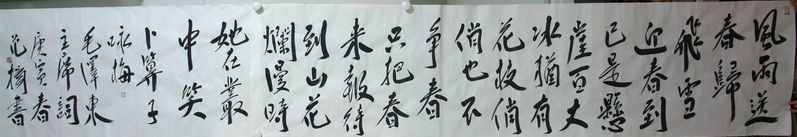 風雨送
春歸
飛雪
迎春到
已是懸
崖百丈
冰猶有
花枝俏
俏也不
争春
只把春
来報待
到山花
爛漫時
她在叢
中笑
卜算子
咏梅
毛澤東
主席詞
庚寅春
書